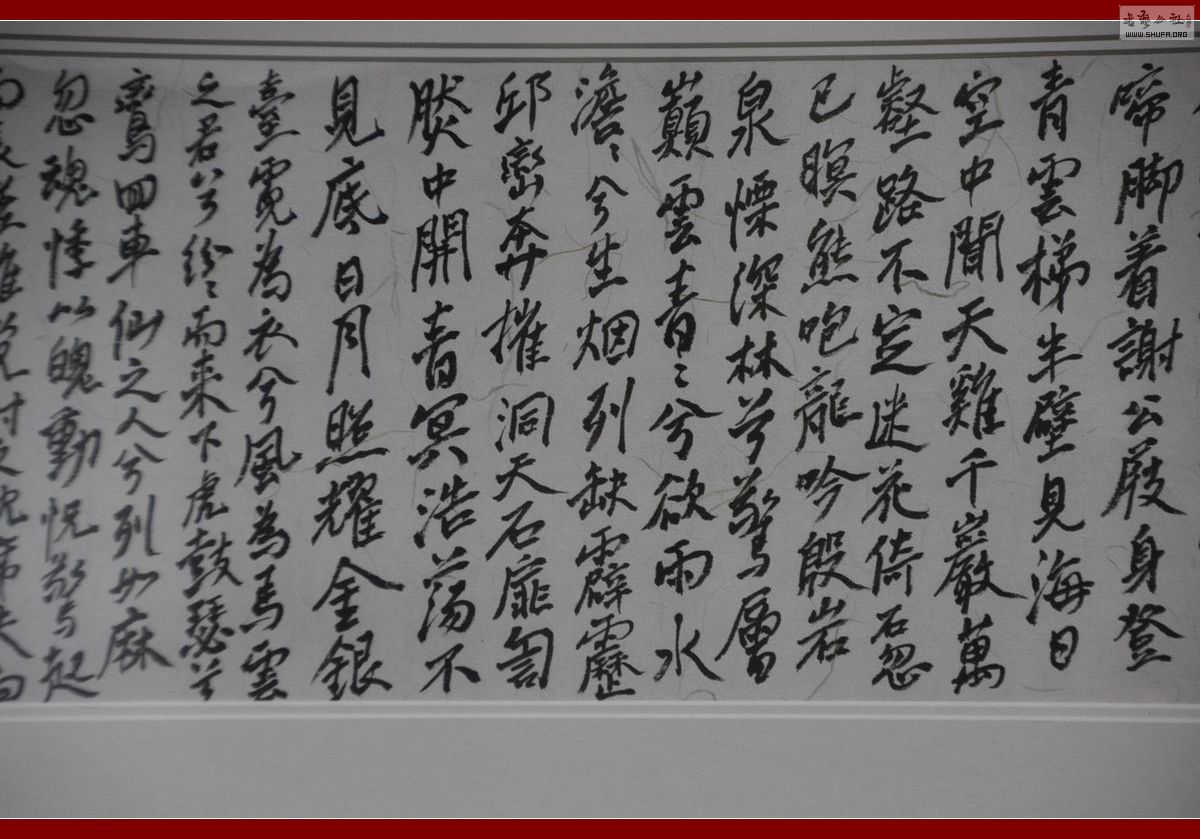 啼脚着謝公屐身登
青雲梯半壁見海日
空中聞天雞千巖萬
壑路不定迷花倚石忽
已暝熊咆龍吟殷岩
泉慄深林兮驚層
巔雲青〻兮欲雨水
澹〻兮生烟列缺霹靂
邱巒奔摧洞天石扉訇
然中開青冥浩蕩不
見底日月照耀金銀
臺霓為衣兮風為馬雲
之君兮紛〻而来下虎鼓瑟兮
鸞回車仙之人兮列如麻
忽魂悸以魄動怳驚起
而長嗟惟覺時之枕席失向
WWW.SHUFA.ORG